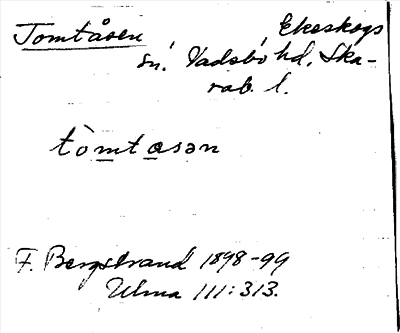 Tomtåsen, Ekeskogs
sn, Vadsbo hd, Ska-
rab. l.
tòmtasən
F. Bergstrand 1898-99
Ulma 111:313.